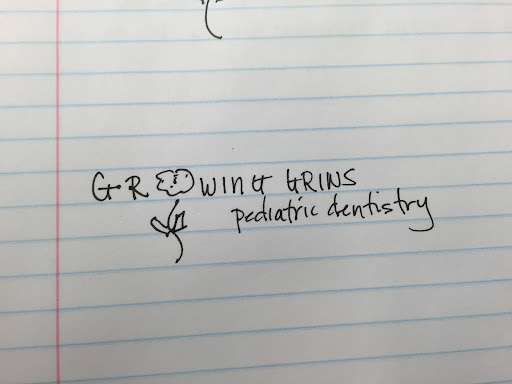 GROWING GRINS
pediatric dentistry